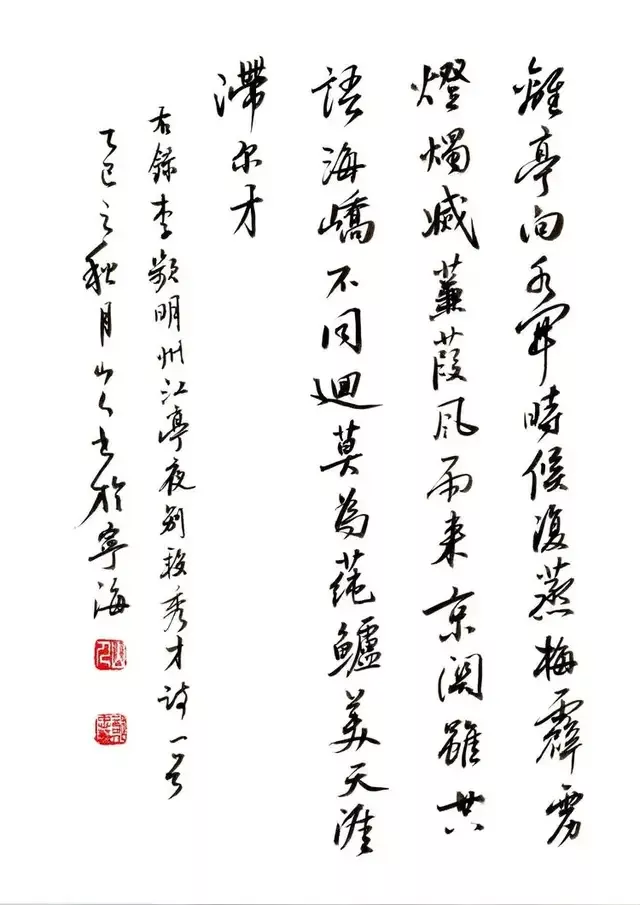 離亭向水開時候復蒸梅霹靂
燈燭滅蒹葭風雨来京關雖共
語海嶠不同迴莫為蓴鱸美天涯
滯尔才
右録李頻明州江亭夜别段秀才詩一首
乙巳之秋月山人书於寧海